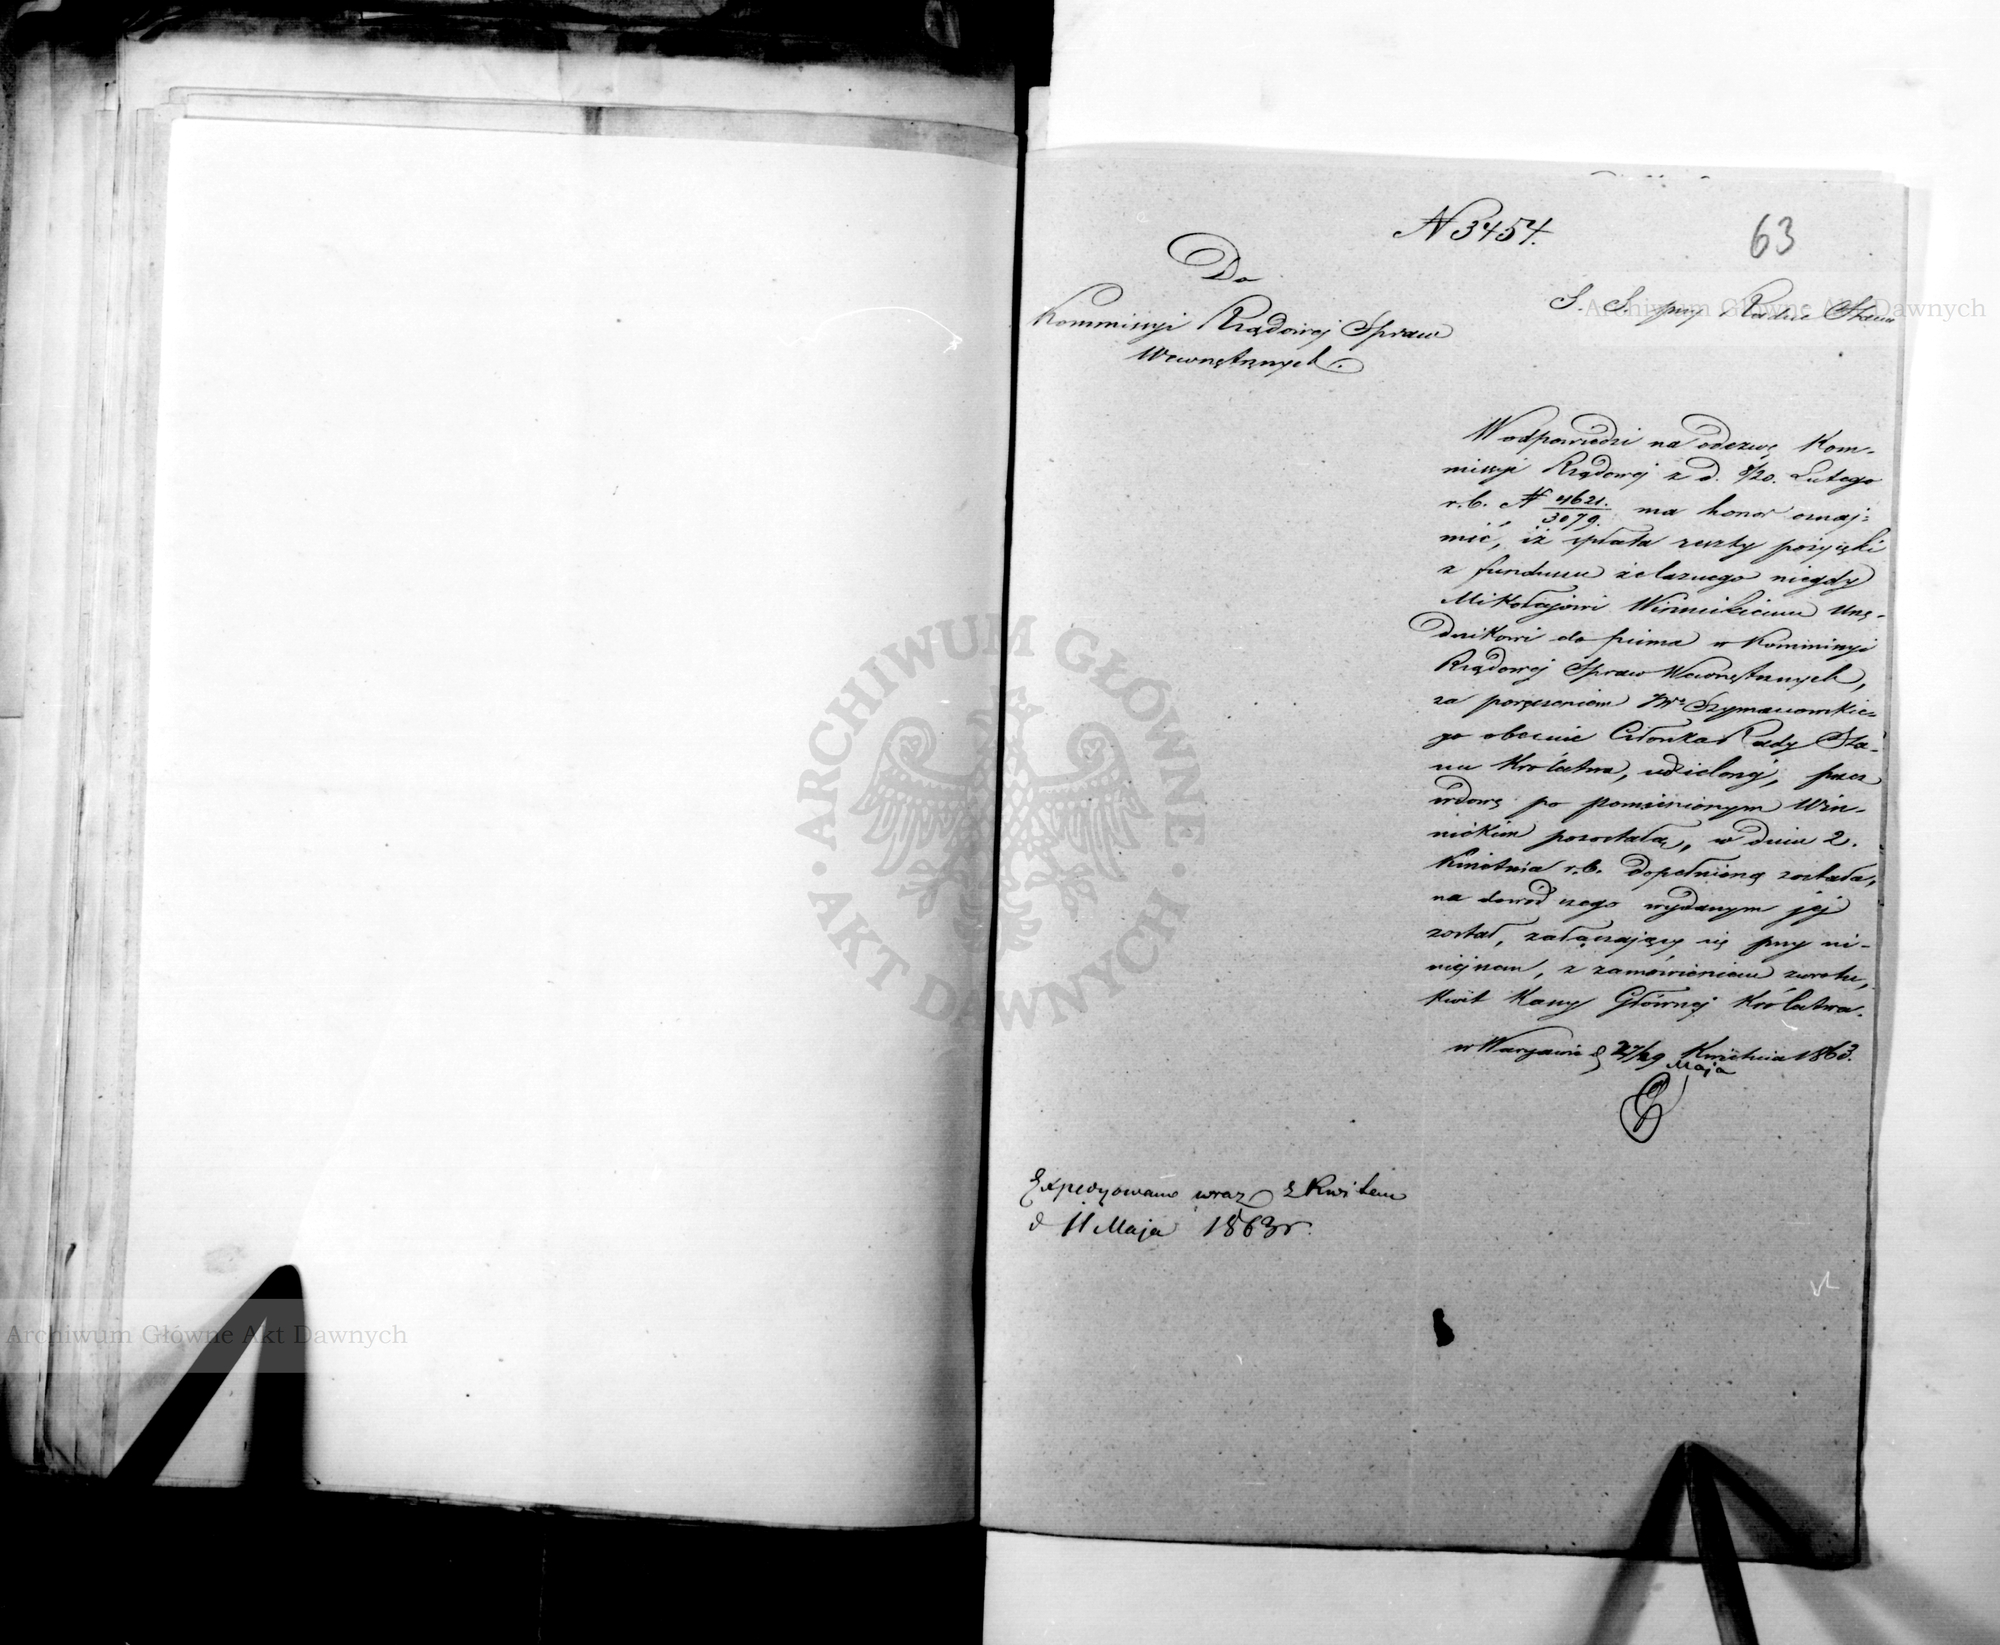 N 3454.
63
Do
Kommissyi Rządowej Spraw
Wewnętrznych.
S. S. przy Radzie Stanu
W odpowiedzi na odezwę Kom-
missyi Rządowej z d. 8/20. Lutego
r.b. N 4621./3079. ma honor oznaj-
mić, iż spłata reszty pożyczki
z funduszu żelaznego niegdy
Mikołajowi Winnickiemu Urzę-
dnikowi do pisma w Kommissyi
Rządowej Spraw Wewnętrznych,
za poręczeniem Szymanowskie-
go obecnie Członka Rady Sta-
nu Królestwa, udzielonej, przez
wdowę po pomienionym Win-
nickim pozostałą, w dniu 2.
Kwietnia r.b. dopełnioną została,
na dowód czego wydanym jej
został, załączający się przy ni-
niejszem, z zamówieniem zwrotu,
kwit Kassy Głównej Królestwa.
w Warszawie d 27/29 Kwietnia 1863.
Maja
Expedyowano wraz z Kwitem
d 11 Maja 1863 r.
Archiwum Główne Akt Dawnych
ARCHIWUM GŁÓWNE AKT DAWNYCH
Archiwum Główne Akt Dawnych